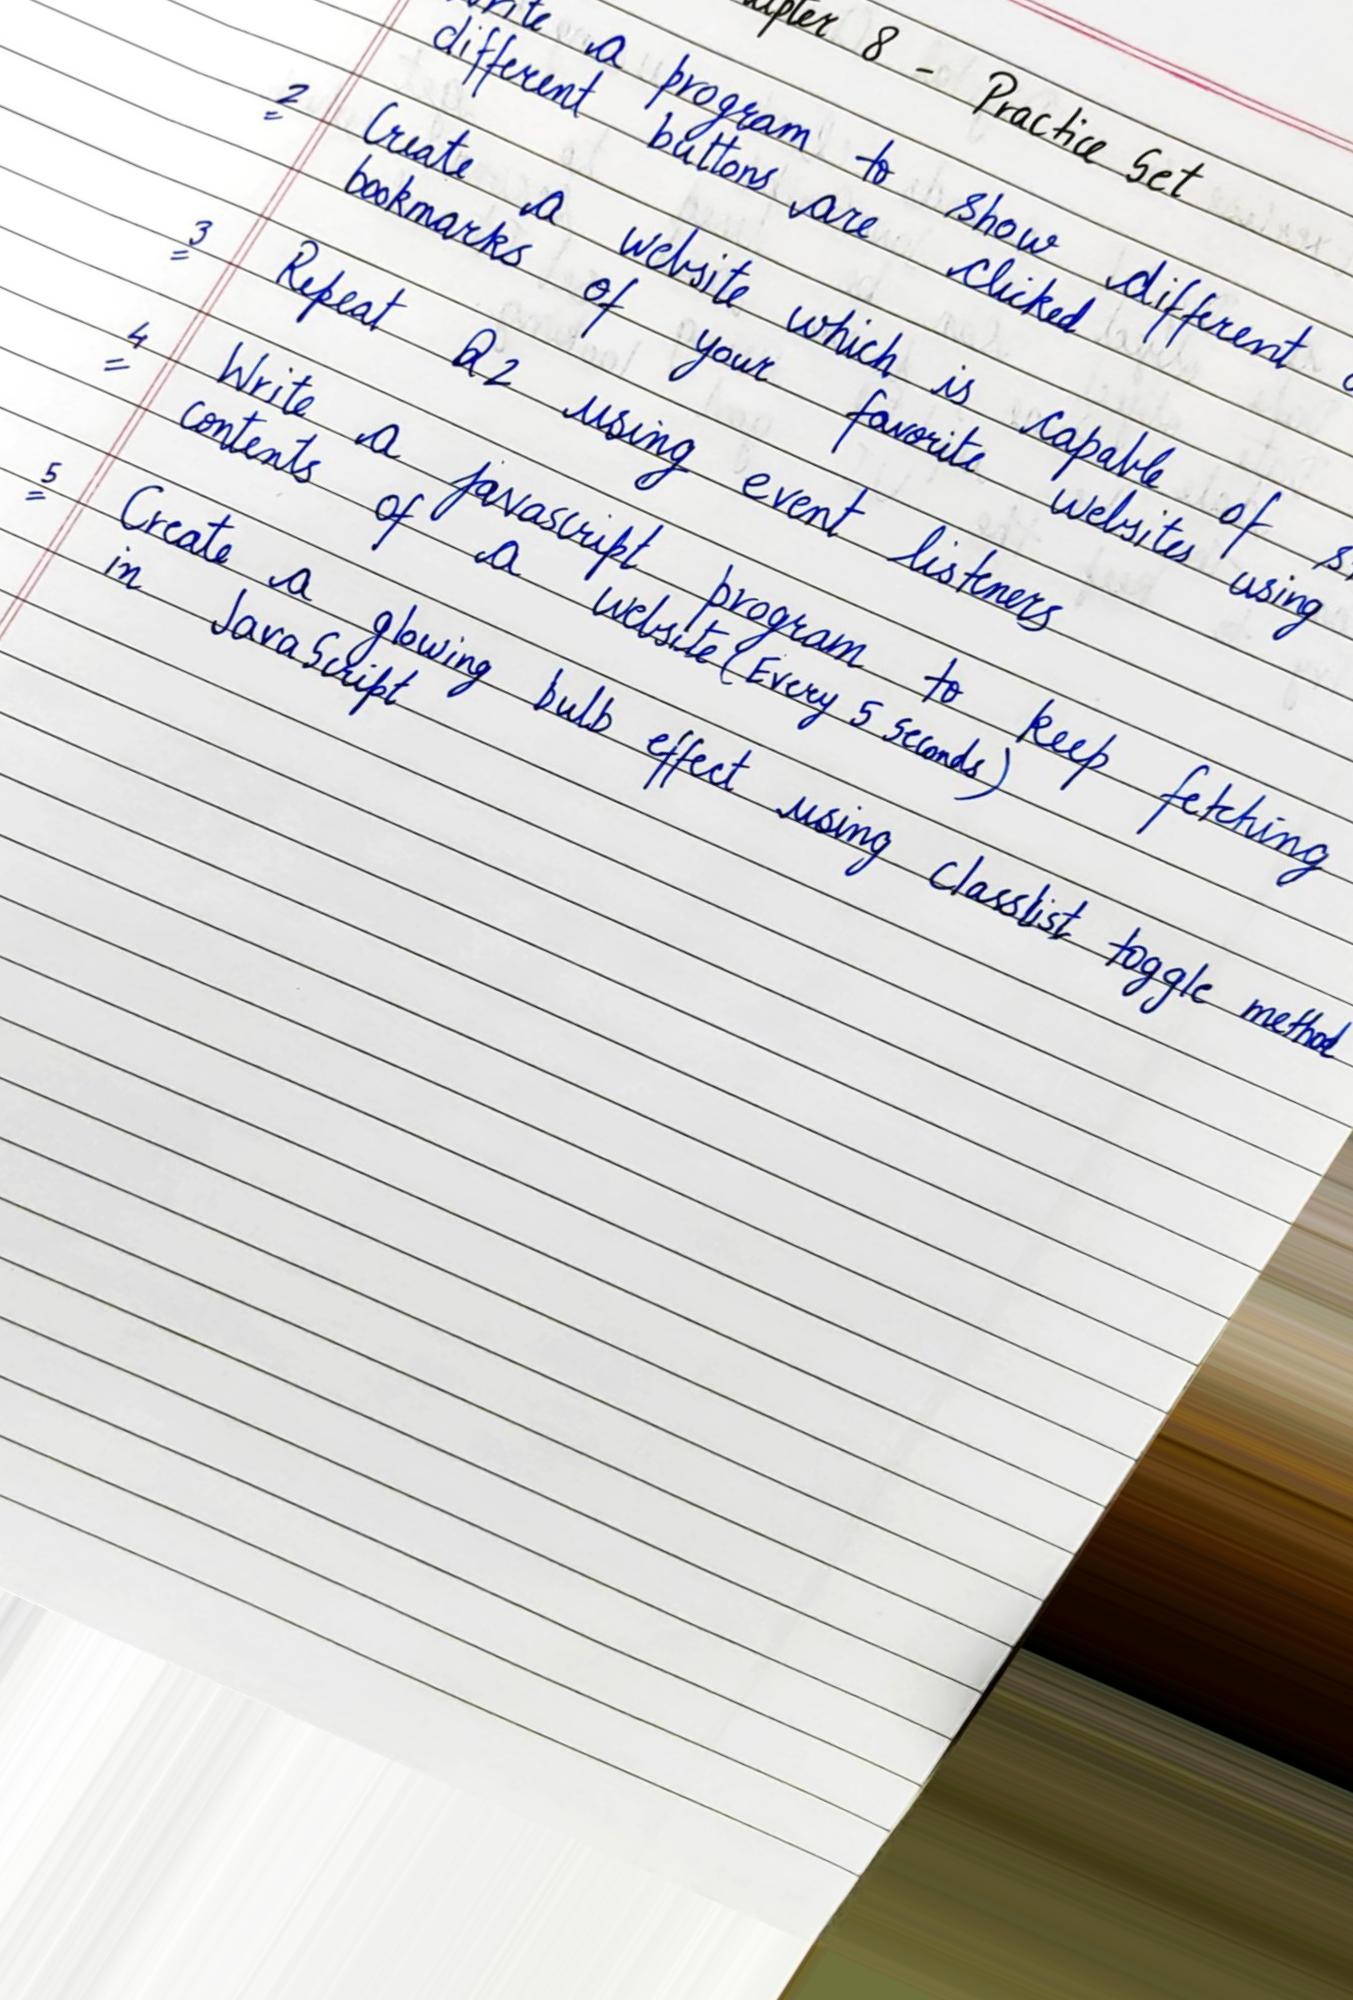 8 - Practice Set
a program to show different
different buttons are clicked
2 Create a website which is capable of
bookmarks of your favorite websites using
3 Repeat Q2 using event listeners
4 Write a javascript program to keep fetching
contents of a website (Every 5 seconds)
5 Create a glowing bulb effect using classlist toggle method
in JavaScript